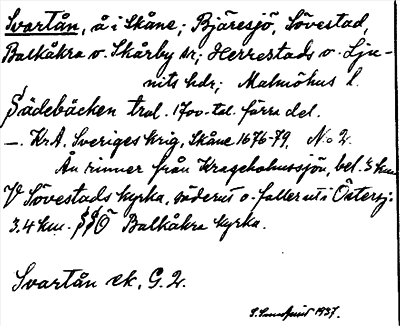 Svartån, å i Skåne; Bjäresjö, Sövestad,
Balkåkra o. Skårby sr; Herrestads o. Lju-
nits hdr; Malmöhus l.
Sädebäcken trol. 1700-tal. förra del.
—. Kr.A. Sveriges krig, Skåne 1676-79, No 2.
Ån rinner från Krageholmssjön, bel. 3 km
V Sövestads kyrka, söderut o. faller ut i Östersj.
3.4 km. SSÖ Balkåkra kyrka.
Svartån ek. G. 2.
1937.